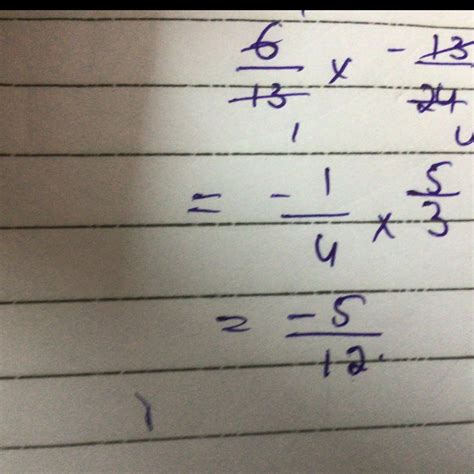 6/13 × -13/24
1 4
= -1/4 × 5/3
= -5/12.